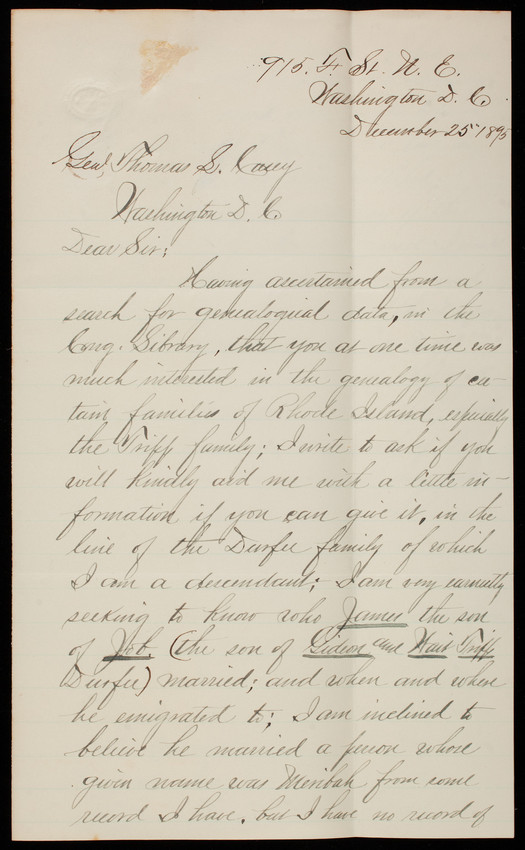 915. F. St. N. E.
Washington D. C.
December 25" 1895
Genl. Thomas L. Casey
Washington D. C
Dear Sir;
Having ascertained from a
search for genealogical data, in the
Cong. Library, that you at one time was
much interested in the genealogy of cer-
tain families of Rhode Island, especially
the Tripp family; I write to ask if you
will kindly aid me with a little in-
formation if you can give it, in the
line of the Durfee family of which
I am a descendant; I am very earnestly
seeking to know who James the son
of Job. (the son of Gideon and Wait Tripp
Durfee) married; and when and where
he emigrated to; I am inclined to
believe he married a person whose
given name was Meribah from some
record I have, but I have no record of